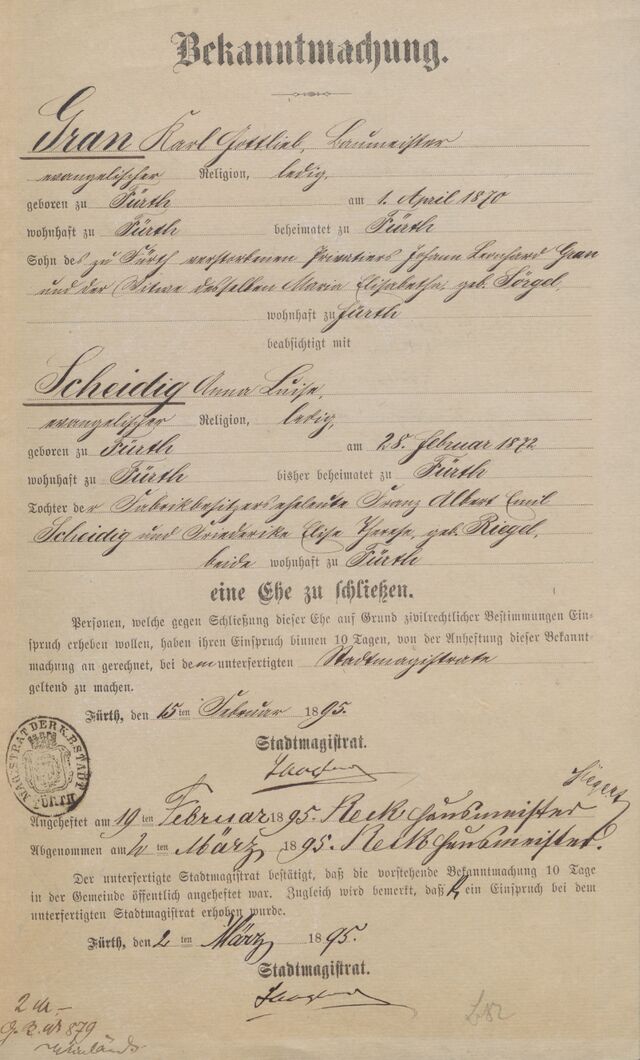 Bekanntmachung.
Gran Karl Gottlieb, Baumeister
evangelischer Religion, ledig,
geboren zu Fürth am 1. April 1870
wohnhaft zu Fürth beheimatet zu Fürth
Sohn des zu Fürth verstorbenen Privatiers Johann Leonhard Gran
und der Witwe desselben Maria Elisabetha, geb. Sörgel,
wohnhaft zu Fürth
beabsichtigt mit
Scheidig Anna Luise,
evangelischer Religion, ledig,
geboren zu Fürth am 28. Februar 1872
wohnhaft zu Fürth bisher beheimatet zu Fürth
Tochter der Fabrikbesitzerseheleute Franz Albert Emil
Scheidig und Friederike Elise Therese, geb. Riegel,
beide wohnhaft zu Fürth
eine Ehe zu schließen.
Personen, welche gegen Schließung dieser Ehe auf Grund zivilrechtlicher Bestimmungen Ein-
spruch erheben wollen, haben ihren Einspruch binnen 10 Tagen, von der Anheftung dieser Bekannt-
machung an gerechnet, bei dem unterfertigten Stadtmagistrate
geltend zu machen.
Fürth, den 15ten Februar 1895.
Stadtmagistrat.
MAGISTRAT DER K.B. STADT FÜRTH
Angeheftet am 19ten Februar 1895. Keck Hausmeister
Abgenommen am 2ten März 1895. Keck Hausmeister.
Der unterfertigte Stadtmagistrat bestätigt, daß die vorstehende Bekanntmachung 10 Tage
in der Gemeinde öffentlich angeheftet war. Zugleich wird bemerkt, daß kein Einspruch bei dem
unterfertigten Stadtmagistrat erhoben wurde.
Fürth, den 2ten März 1895.
Stadtmagistrat.
2 M.–
879